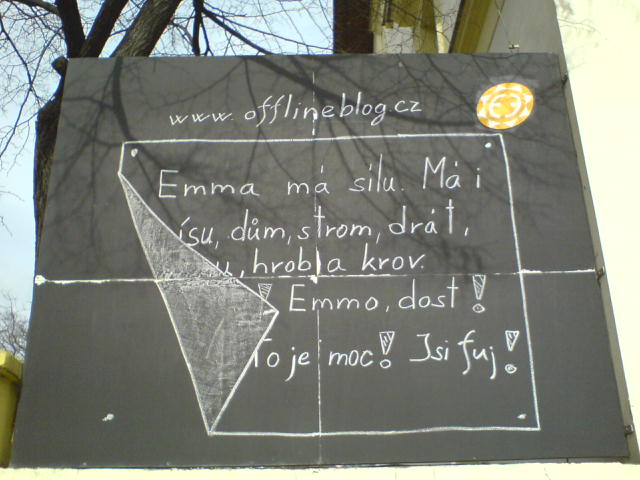 www.offlineblog.cz
Emma má sílu. Má i
ísu, dům, strom, drát,
u, hrob a krov.
Emmo, dost!
To je moc! Jsi fuj!